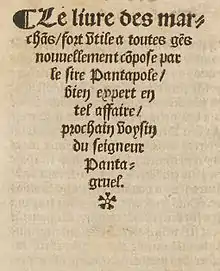 ¶Le liure des mar-
chãs/ fort vtile a toutes gẽs
nouuellement cõpose par
le sire Pantapole/
bien expert en
tel affaire/
prochain voysin
du seigneur
Panta-
gruel.